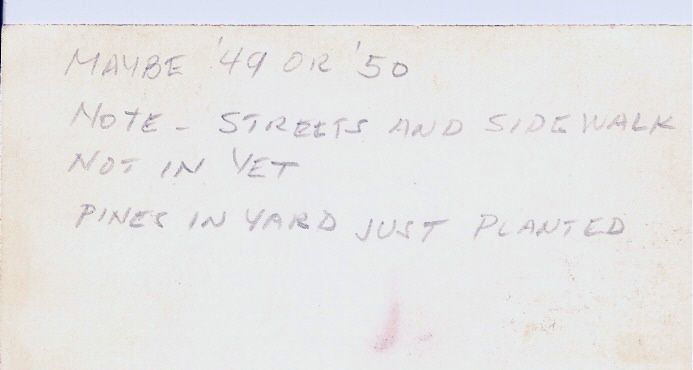 MAYBE '49 OR '50
NOTE - STREETS AND SIDEWALK
NOT IN YET
PINES IN YARD JUST PLANTED